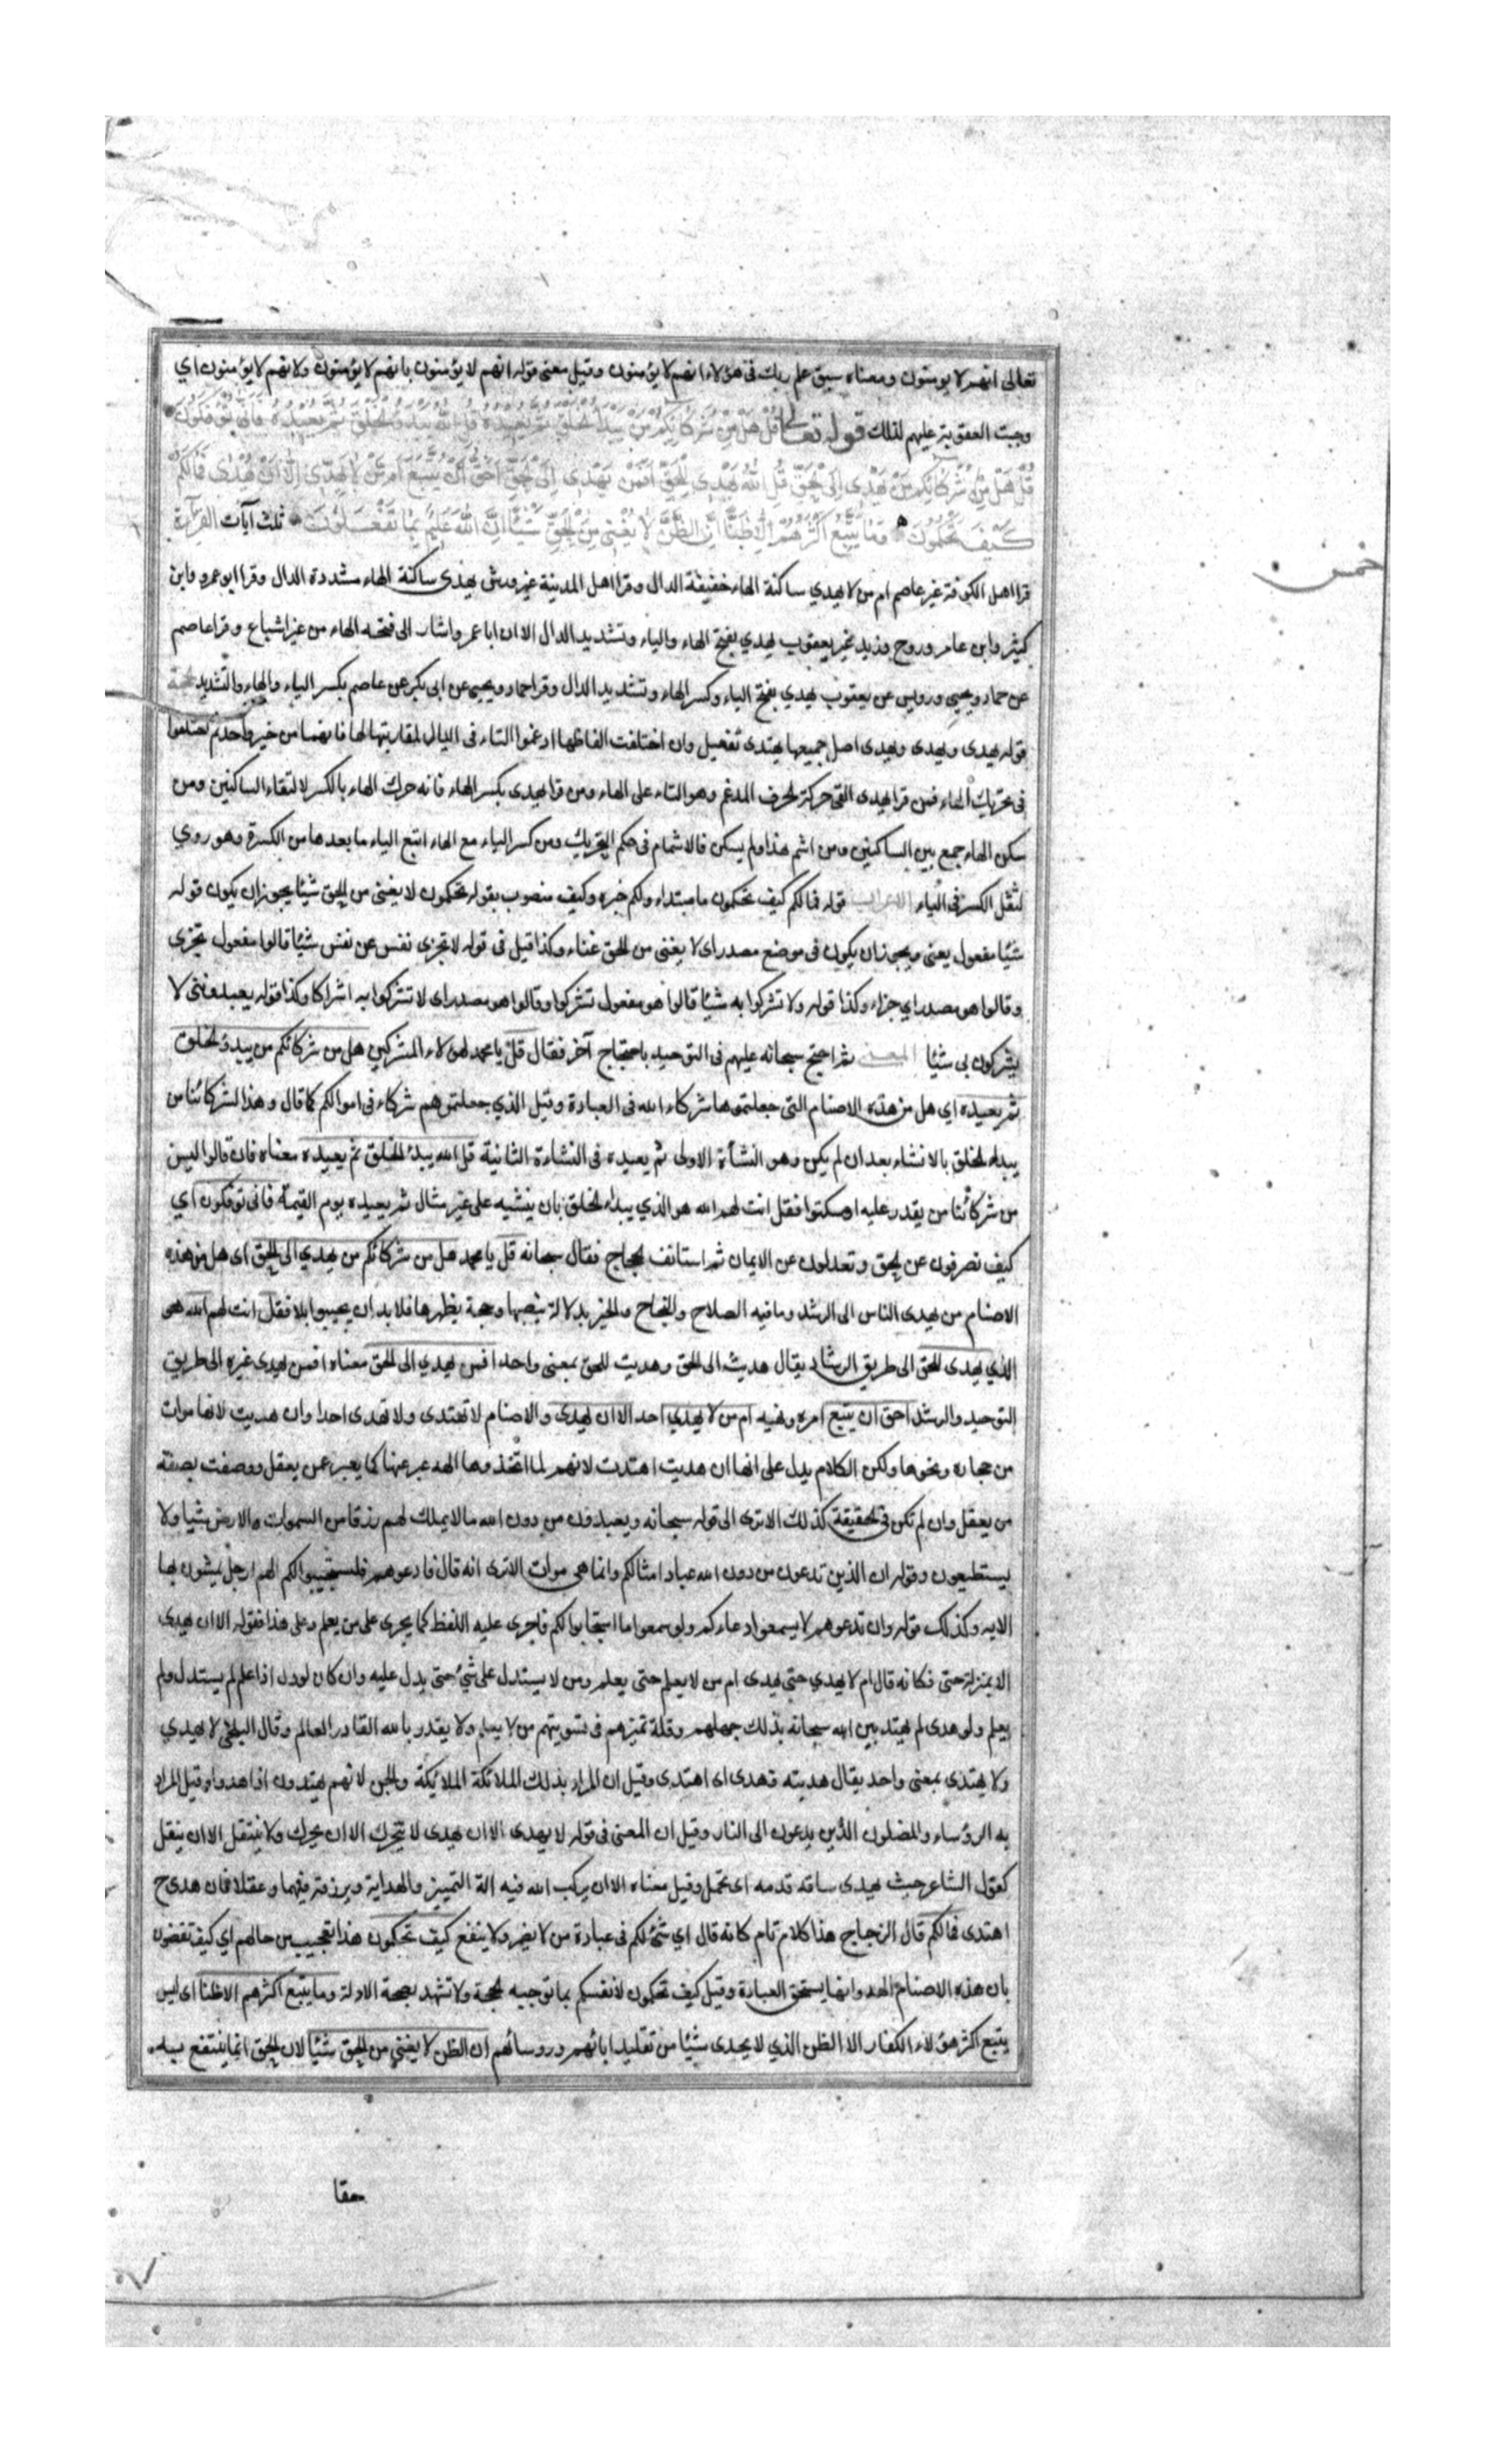 تعالى انهم لا يومنون ومعناه سبق علم ربك في هؤلاء انهم لا يؤمنون وقيل معنى قوله انهم لا يؤمنون بانهم لا يؤمنون ولانهم لا يؤمنون اي
وجبت العقوبة عليهم لذلك قوله تعالى قُلْ هَلْ مِنْ شُرَكَائِكُمْ مَنْ يَبْدَأُ الْخَلْقَ ثُمَّ يُعِيدُهُ قُلِ اللَّهُ يَبْدَؤُ الْخَلْقَ ثُمَّ يُعِيدُهُ فَأَنَّى تُؤْفَكُونَ
قُلْ هَلْ مِنْ شُرَكَائِكُمْ مَنْ يَهْدِي إِلَى الْحَقِّ قُلِ اللَّهُ يَهْدِي لِلْحَقِّ أَفَمَنْ يَهْدِي إِلَى الْحَقِّ أَحَقُّ أَنْ يُتَّبَعَ أَمَّنْ لَا يَهِدِّي إِلَّا أَنْ يُهْدَى فَمَا لَكُمْ
كَيْفَ تَحْكُمُونَ وَمَا يَتَّبِعُ أَكْثَرُهُمْ إِلَّا ظَنًّا إِنَّ الظَّنَّ لَا يُغْنِي مِنَ الْحَقِّ شَيْئًا إِنَّ اللَّهَ عَلِيمٌ بِمَا يَفْعَلُونَ ثلث آيات القراءة
قرا اهل الكوفة غير عاصم ام من لا يهدي ساكنة الهاء خفيفة الدال وقرا اهل المدينة غير ورش يهدي ساكنة الهاء مشددة الدال وقرا ابو عمرو وابن
كثير وابن عامر وروح وزيد عن يعقوب يهدي بفتح الهاء والياء وتشديد الدال الا ان ابا عمرو اشار الى فتحة الهاء من غير اشباع وقرا عاصم
عن حماد ويحيى ورويس عن يعقوب يهدي بفتح الياء وكسر الهاء وتشديد الدال وقرا حماد ويحيى عن ابي بكر عن عاصم بكسر الياء والهاء والتشديد الحجة
قوله يهدى ويهدى ويهدى اصل جميعها يهتدى تفتعيل وان اختلفت الفاظها ادغموا التاء في الدال لمقاربتها لها فانهما من حيز واحد ثم اختلفوا
في تحريك الهاء فمن قرا يهدى القى حركة الحرف المدغم وهو التاء على الهاء ومن قرا يهدى بكسر الهاء فانه حرك الهاء بالكسر لالتقاء الساكنين ومن
سكن الهاء جمع بين الساكنين ومن اشم هذا ولم يسكن فالاشمام في حكم التحريك ومن كسر الياء مع الهاء اتبع الياء ما بعدها من الكسرة وهو روي
لثقل الكسر في الياء الاعراب قوله فما لكم كيف تحكمون ما مبتداء ولكم خبره وكيف منصوب بقوله تحكمون لا يغنى من الحق شيئا يجوز ان يكون قوله
شيئا مفعول يغنى ويجوز ان يكون في موضع مصدر اى لا يغنى من الحق غناء وكذا قيل في قوله لا تجزى نفس عن نفس شيئا قالوا مفعول تجزى
وقالوا هو مصدر اي جزاء وكذا قوله ولا تشركوا به شيئا قالوا هو مفعول تشركوا وقالوا هو مصدر اى لا تشركوا به اشراكا وكذا قوله يعبدونني لا
يشركون بي شيئا المعنى ثم احتج سبحانه عليهم في التوحيد باحتجاج آخر فقال قل يا محمد لهؤلاء المشركين هل من شركائكم من يبدؤ الخلق
ثم يعيده اي هل من هذه الاصنام التي جعلتموها شركاء الله في العبادة وقيل الذي جعلتموهم شركاء في اموالكم كما قال وهذا لشركائنا من
يبداء الخلق بالانشاء بعد ان لم يكن وهو النشأة الاولى ثم يعيده في النشاءة الثانية قل الله يبدئ الخلق ثم يعيده معناه فان قالوا ليس
من شركائنا من يقدر عليه او سكتوا فقل انت لهم الله هو الذي يبداء الخلق بان ينشيه على غير مثال ثم يعيده يوم القيمة فانى توفكون اي
كيف تصرفون عن الحق وتعدلون عن الايمان ثم استانف الحجاج فقال سبحانه قل يا محمد هل من شركائكم من يهدي الى الحق اى هل من هذه
الاصنام من يهدى الناس الى الرشد وما فيه الصلاح والنجاح والخير بدلالة ينصبها وحجة يظهرها فلا بد ان يجيبوا بلا فقل انت لهم الله هو
الذي يهدى للحق الى طريق الرشاد يقال هديت الى الحق وهديت للحق بمعنى واحد افمن يهدي الى الحق معناه افمن يهدى غيره الى طريق
التوحيد والرشد احق ان يتبع امره ونهيه ام من لا يهدي احد الا ان يهدى والاصنام لا تهتدى ولا تهدى احدا وان هديت لانها موات
من حجارة ونحوها ولكن الكلام يدل على انها ان هديت اهتدت لانهم لما اتخذوها الهة عبر عنها كما يعبر عمن يعقل ووصفت بصفة
من يعقل وان لم تكن في الحقيقة كذلك الا ترى الى قوله سبحانه ويعبدون من دون الله ما لا يملك لهم رزقا من السموات والارض شيئا ولا
يستطيعون وقوله ان الذين تدعون من دون الله عباد امثالكم وانما هى موات الا ترى انه قال فادعوهم فليستجيبوا لكم الهم ارجل يمشون بها
الاية وكذلك قوله وان تدعوهم لا يسمعوا دعاءكم ولو سمعوا ما استجابوا لكم فاجرى عليه اللفظ كما يجرى على من يعلم وعلى هذا فقوله الا ان يهدى
الا بمنزلة حتى فكانه قال ام لا يهدي حتى يهدى ام من لا يعلم حتى يعلم ومن لا يستدل على شئ حتى يدل عليه وان كان لو دل اذا علم لم يستدل ولم
يعلم ولو هدى لم يهتد بين الله سبحانه بذلك جهلهم وقلة تميزهم في تسويتهم من لا يعلم ولا يقدر بالله القادر العالم وقال البلخي لا يهدي
ولا يهتدى بمعنى واحد يقال هديته فهدى اى اهتدى وقيل ان المراد بذلك الملائكة الملائكة والجن لانهم يهتدون اذا هدوا وقيل المراد
به الرؤساء والمضلون الذين يدعون الى النار وقيل ان المعنى في قوله لا يهدى الا ان يهدى لا يتحرك الا ان يحرك ولا ينتقل الا ان ينقل
كقول الشاعر حيث يهدى ساقه قدمه اى تحمل وقيل معناه الا ان يركب الله فيه الة التمييز والهداية ويرزقه فهما وعقلا فان هدى ح
اهتدى فما لكم قال الزجاج هذا كلام تام كانه قال اي شئ لكم في عبادة من لا يضر ولا ينفع كيف تحكمون هذا تعجيب من حالهم اي كيف تقضون
بان هذه الاصنام الهة وانها يستحق العبادة وقيل كيف تحكمون لانفسكم بما توجبه الحجة ولا تشهد بصحة الادلة وما يتبع اكثرهم الا ظنا اى ليس
يتبع اكثر هؤلاء الكفار الا الظن الذي لا يجدى شيئا من تقليد ابائهم وروسائهم ان الظن لا يغني من الحق شيئا لان الحق انما ينتفع به
حقا